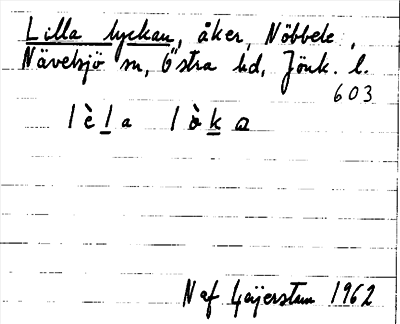 Lilla lyckan, åker, Nöbbele,
Nävelsjö sn, Östra hd, Jönk. l.
603
l è l a l ò k a
N af Geijerstam 1962